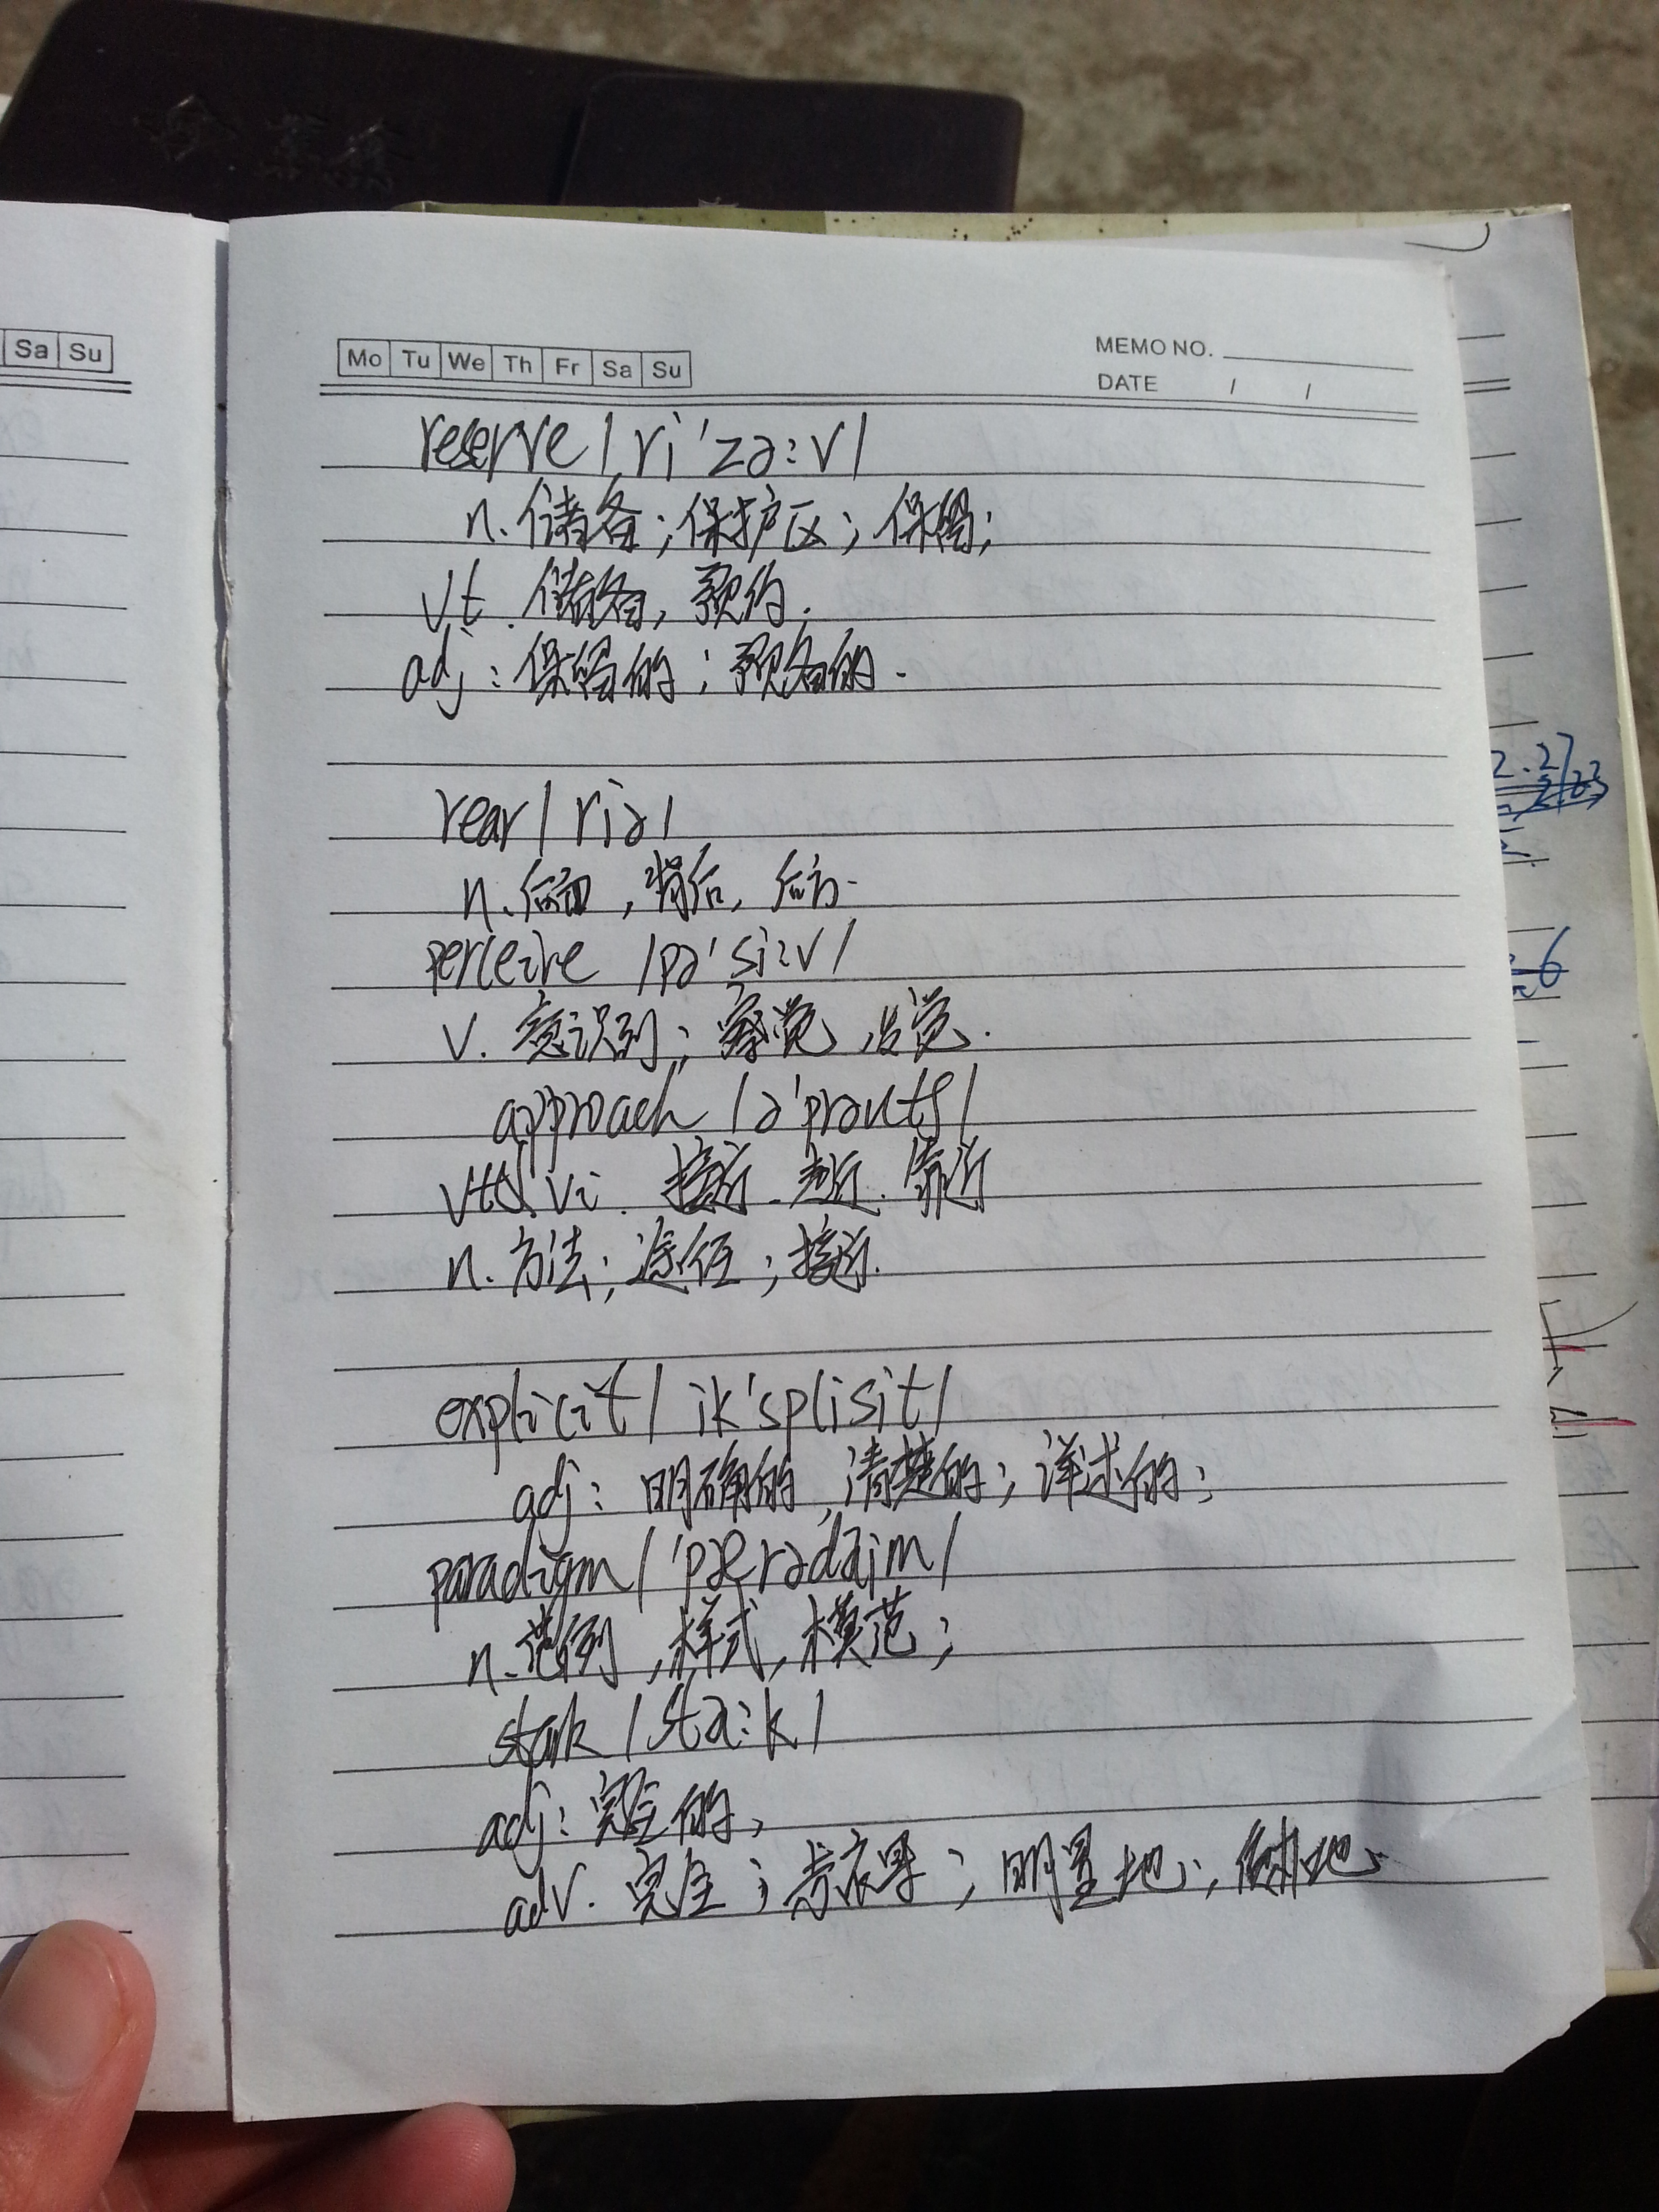 Sa Su
Mo Tu We Th Fr Sa Su
MEMO NO.
DATE / /
reserve /ri'zə:v/
n. 储备；保护区；保留；
vt. 储备，预约.
adj：保留的；预备的.
rear /riə/
n. 后面，背后，后方.
perceive /pə'si:v/
v. 意识到；察觉，发觉.
approach /ə'prəutʃ/
vt&vi. 接近. 走近. 靠近
n. 方法；途径；接近.
explicit /ik'splisit/
adj：明确的，清楚的；详述的；
paradigm /'pærədaim/
n. 范例，样式，模范；
stark /sta:k/
adj：完全的，
adv. 完全；明显地；